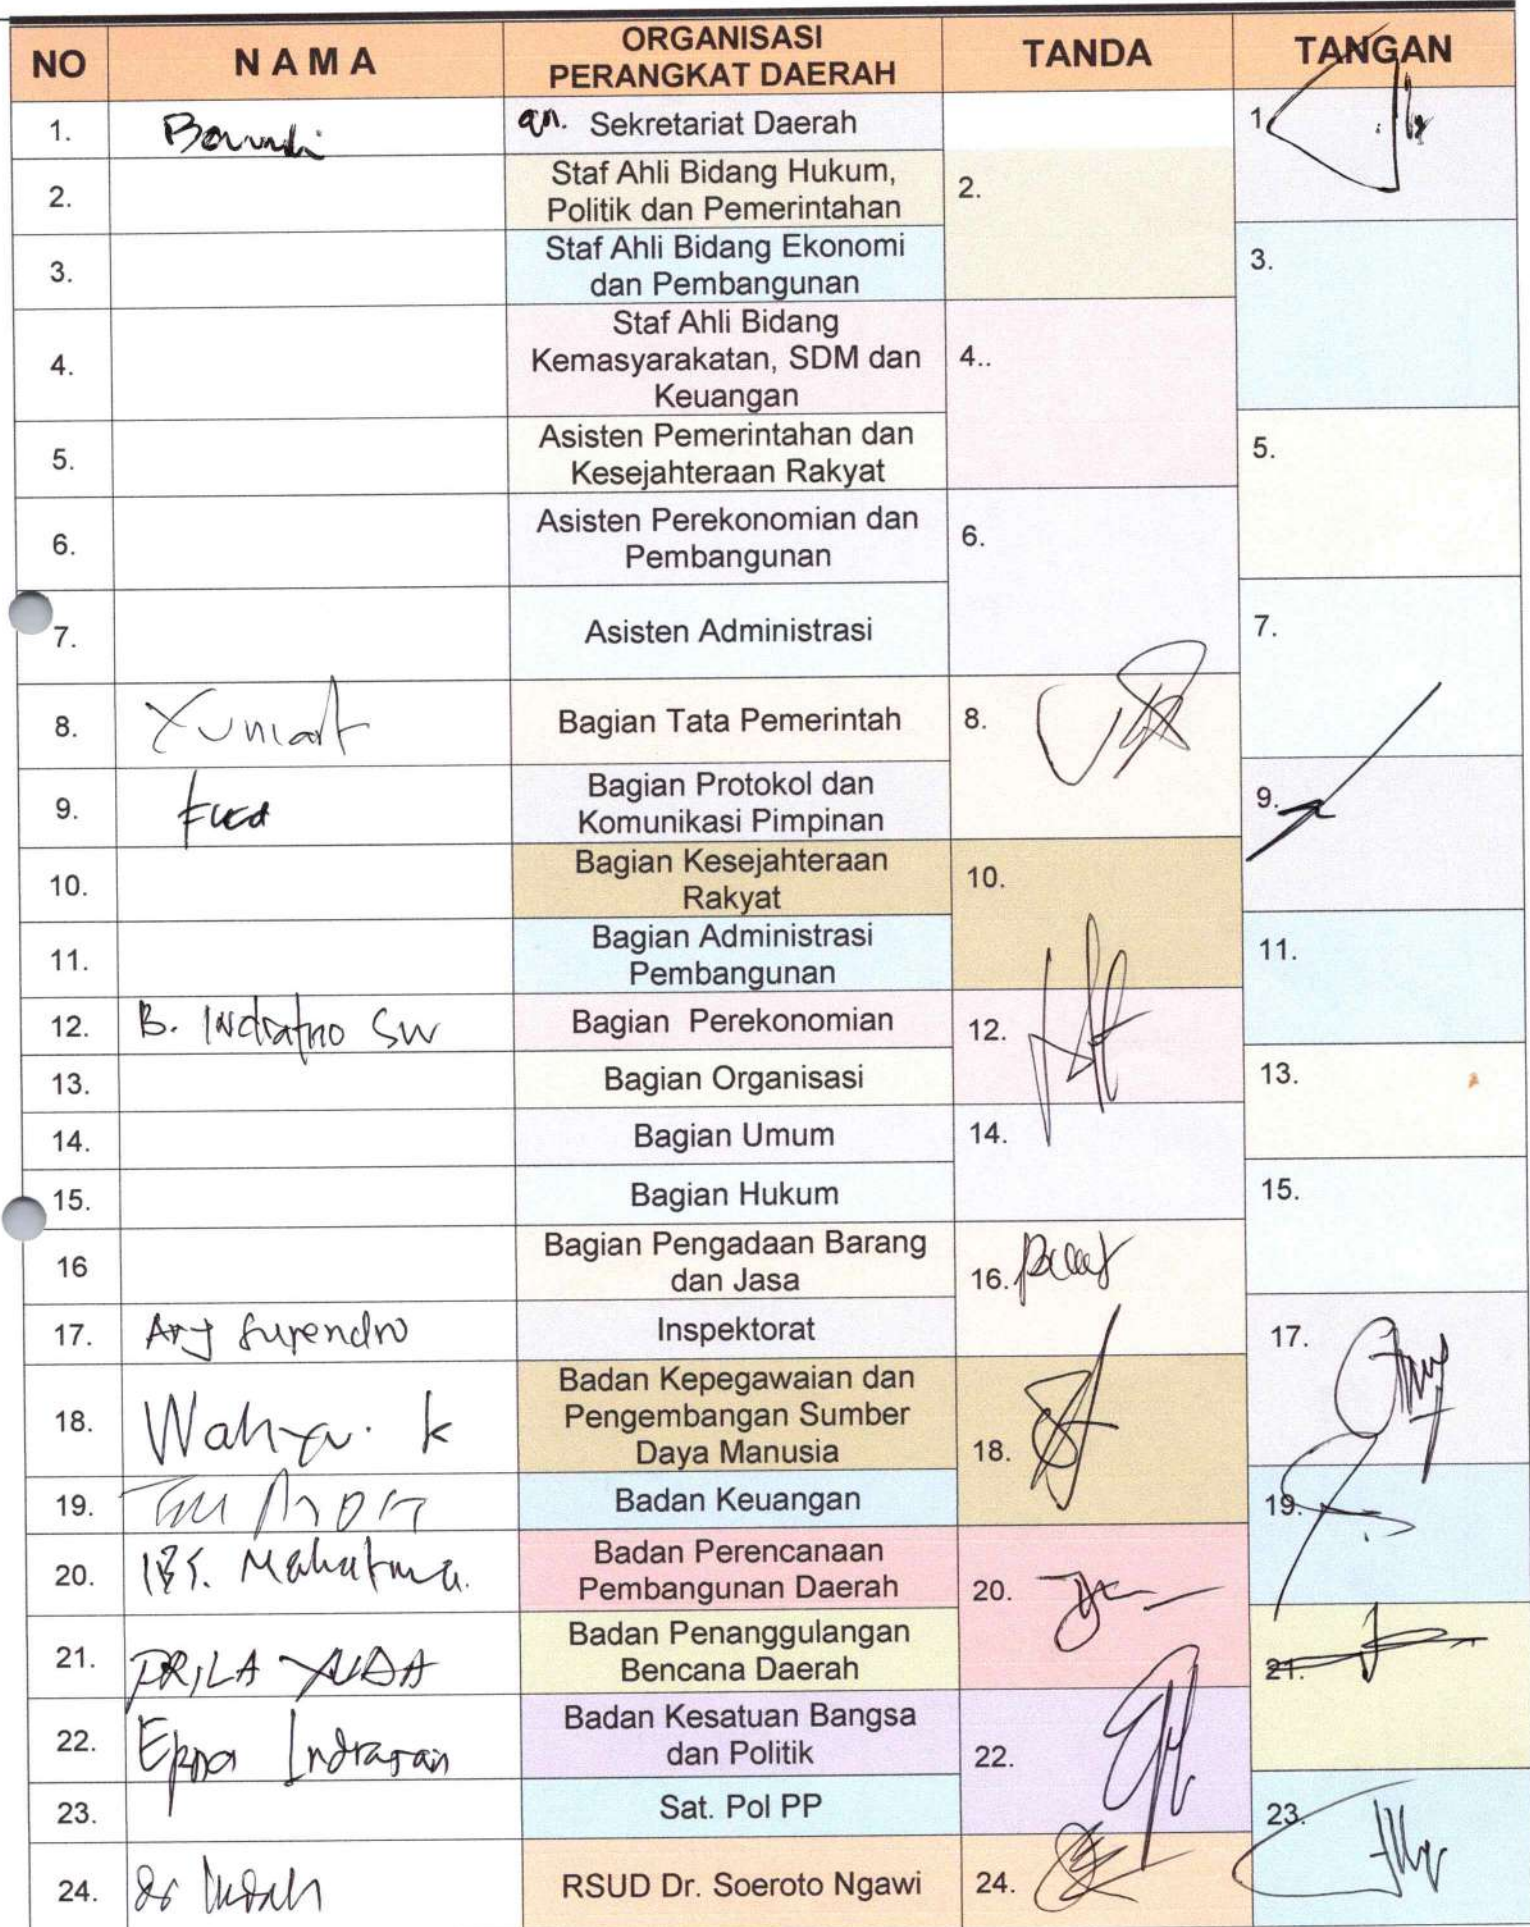 NO NAMA ORGANISASI PERANGKAT DAERAH TANDA TANGAN
1. an. Sekretariat Daerah 1
2. Staf Ahli Bidang Hukum,
Politik dan Pemerintahan 2.
3. Staf Ahli Bidang Ekonomi
dan Pembangunan 3.
4. Staf Ahli Bidang
Kemasyarakatan, SDM dan
Keuangan 4..
5. Asisten Pemerintahan dan
Kesejahteraan Rakyat 5.
6. Asisten Perekonomian dan
Pembangunan 6.
7. Asisten Administrasi 7.
8. Bagian Tata Pemerintah 8.
9. Bagian Protokol dan
Komunikasi Pimpinan 9.
10. Bagian Kesejahteraan
Rakyat 10.
11. Bagian Administrasi
Pembangunan 11.
12. B. Indratno SW Bagian Perekonomian 12.
13. Bagian Organisasi 13.
14. Bagian Umum 14.
15. Bagian Hukum 15.
16 Bagian Pengadaan Barang
dan Jasa 16.
17. Ary Surendro Inspektorat 17.
18. Wahyu. K Badan Kepegawaian dan
Pengembangan Sumber
Daya Manusia 18.
19. Badan Keuangan 19.
20. Mahatma. Badan Perencanaan
Pembangunan Daerah 20.
21. PRILA YUDA Badan Penanggulangan
Bencana Daerah 21.
22. Indrasan Badan Kesatuan Bangsa
dan Politik 22.
23. Sat. Pol PP 23.
24. dr Indah RSUD Dr. Soeroto Ngawi 24.